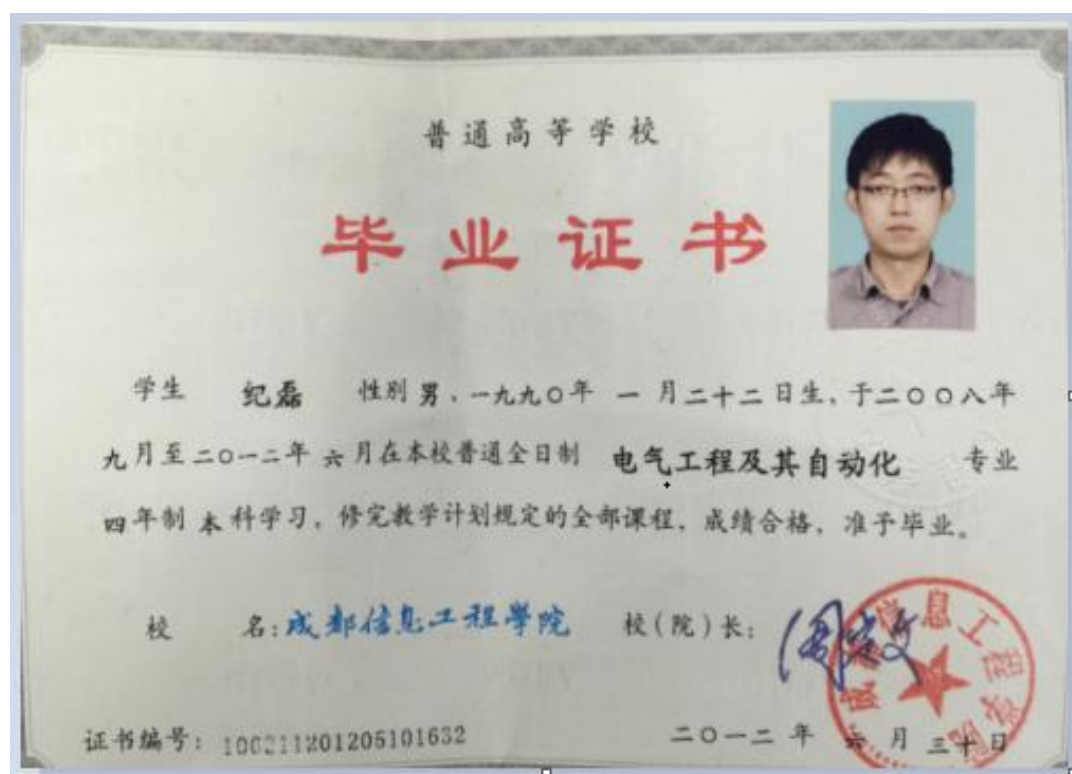 普通高等学校
毕业证书
学生 纪磊 性别 男，一九九〇年 一 月二十二日生，于二〇〇八年
九月至二〇一二年 六月在本校普通全日制 电气工程及其自动化 专业
四年制 本科学习，修完教学计划规定的全部课程，成绩合格，准予毕业。
校 名：成都信息工程學院 校（院）长：
证书编号： 二〇一二年 六月三十日